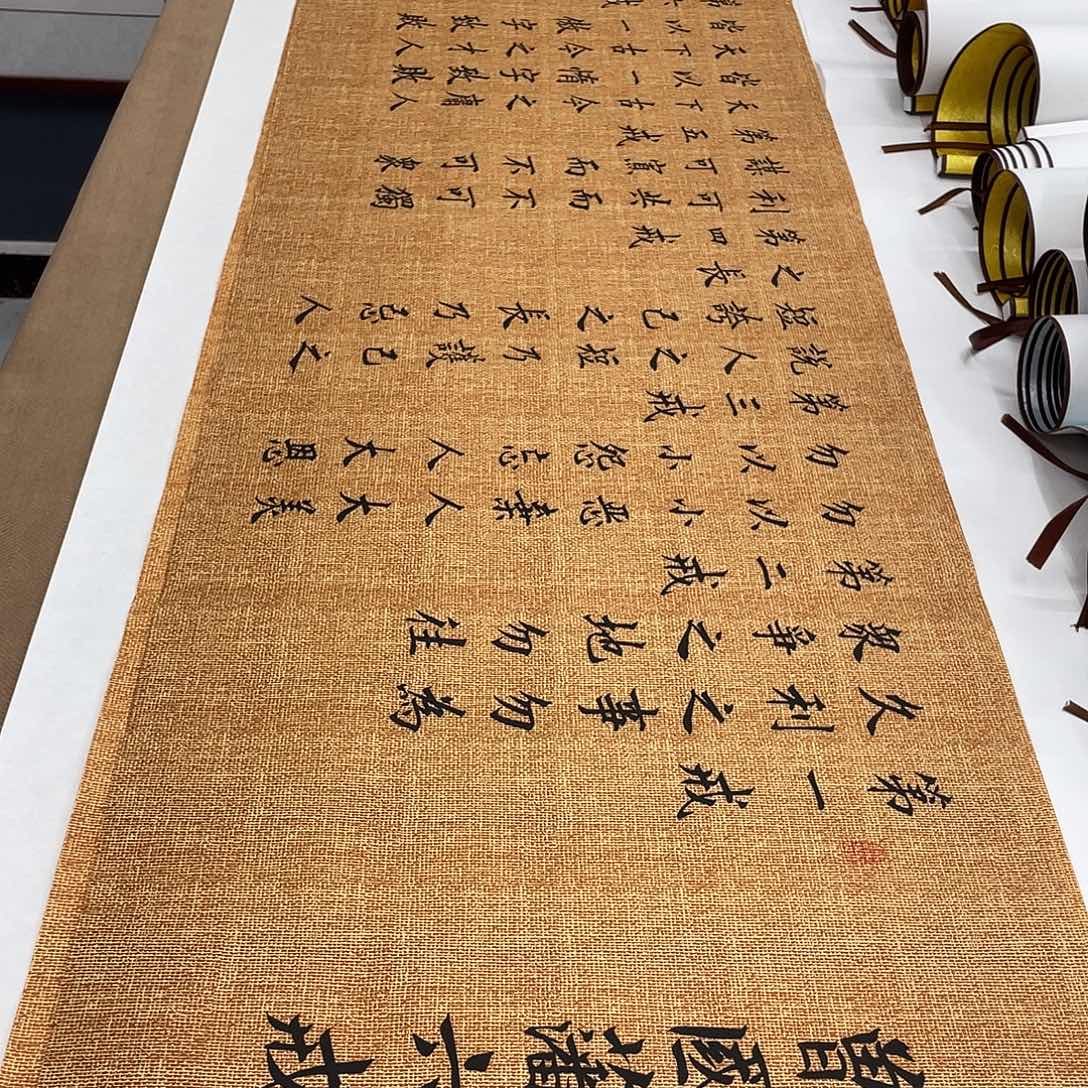 曾國藩六戒
第一戒
久利之事勿為
衆爭之地勿往
第二戒
勿以小惡棄人大美
勿以小怨忘人大恩
第三戒
說人之短乃護己之
短誇己之長乃忌人
之長
第四戒
利可共而不可獨
謀可寡而不可衆
第五戒
天下古今之庸人
皆以一惰字致敗
天下古今之才人
皆以一傲字致敗
第六戒